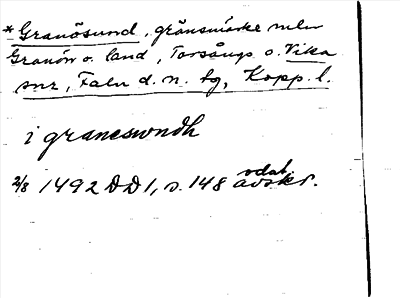 *Granösund, gränsmärke mellan
Granön o. land, Torsångs o. Vika
snr, Falu d. n. tg, Kopp. l.
i graneswndh
2/8 1492 DD1, s. 148 odat. avskr.